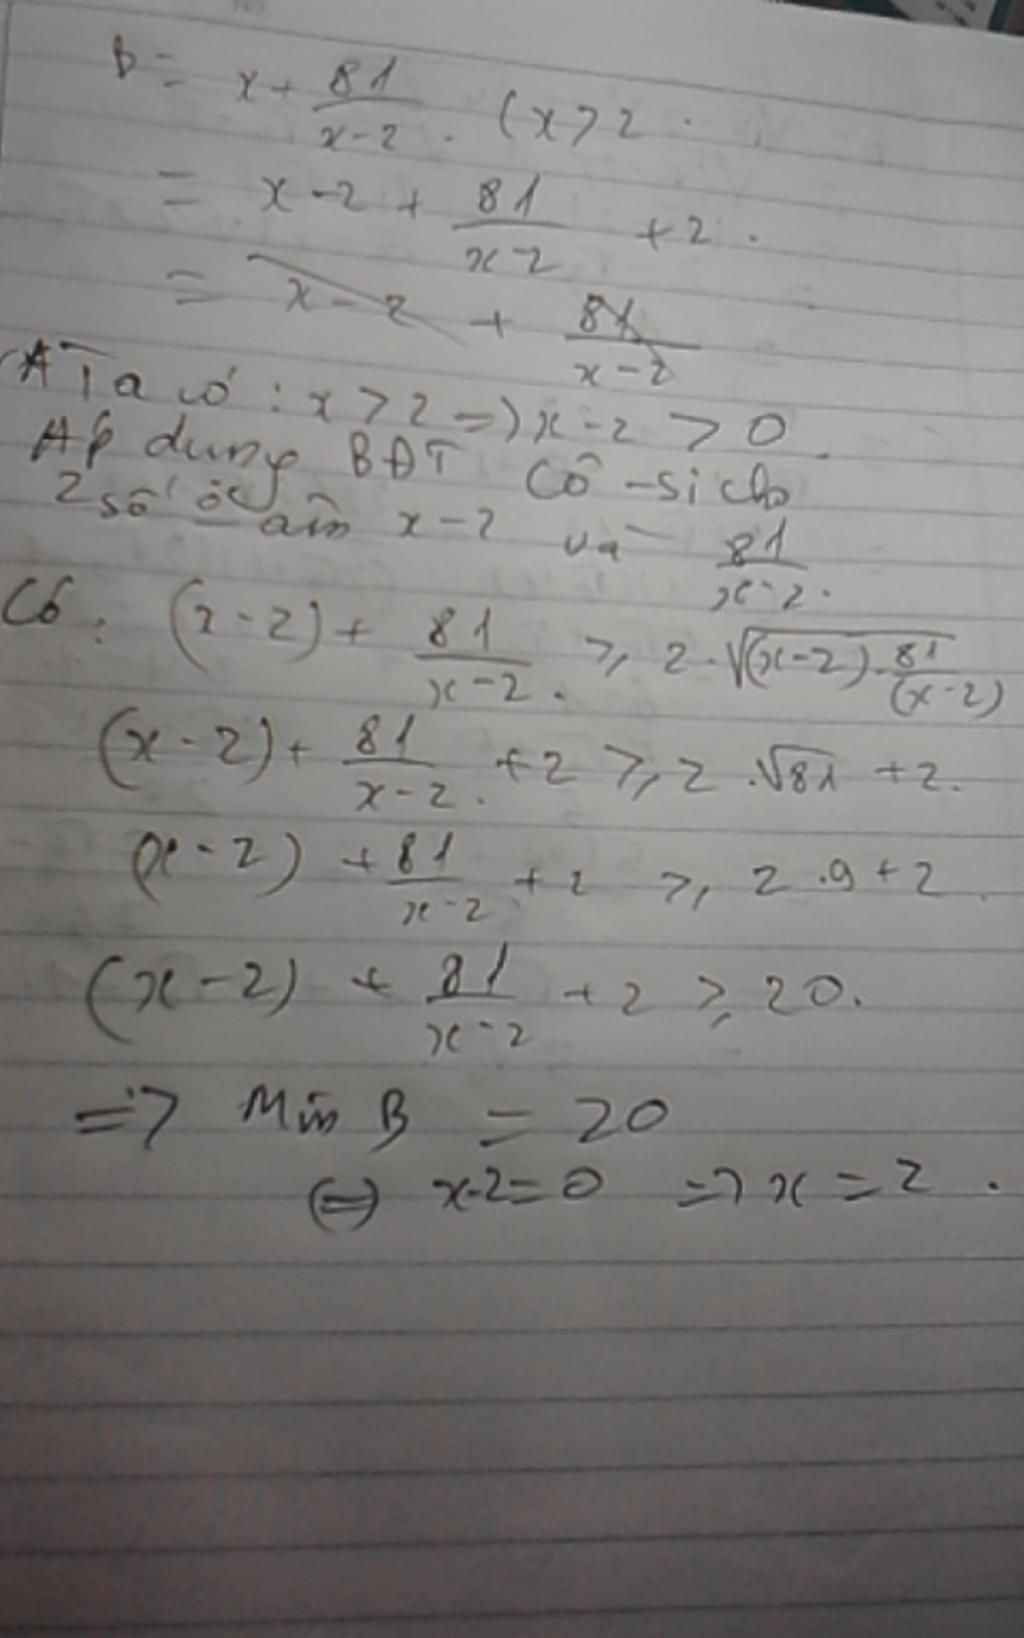 B = x + 81/(x-2) . (x > 2 .
= x - 2 + 81/(x-2) + 2 .
= x - 2 + 81/(x-2)
Ta có : x > 2 => x - 2 > 0 .
Áp dụng BĐT Cô - si cho
2 số x - 2 và 81/(x-2) .
Có : (x - 2) + 81/(x-2) . ≥ 2 . √((x-2) . 81/(x-2))
(x - 2) + 81/(x-2) . + 2 ≥ 2 . √81 + 2 .
(x - 2) + 81/(x-2) + 2 ≥ 2 . 9 + 2 .
(x - 2) + 81/(x-2) + 2 ≥ 20 .
=> Min B = 20
<=> x - 2 = 0 => x = 2 .